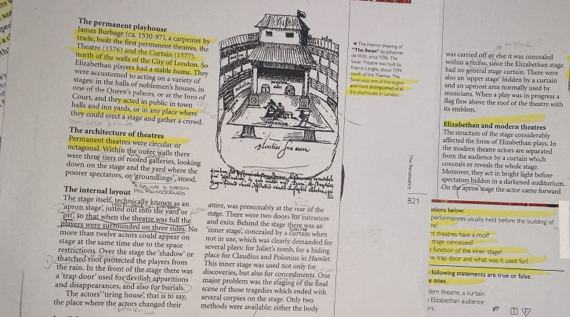 The permanent playhouse
James Burbage (ca. 1530-97), a carpenter by
trade, built the first permanent theatres, the
Theatre (1576) and the Curtain (1577),
north of the walls of the City of London. So
Elizabethan players had a stable home. They
were accustomed to acting on a variety of
stages: in the halls of noblemen's houses, in
one of the Queen's palaces, or at the Inns of
Court, and they acted in public in town
halls and inn yards, or in any place where
they could erect a stage and gather a crowd.
The architecture of theatres
Permanent theatres were circular or
octagonal. Within the outer walls there
were three tiers of roofed galleries, looking
down on the stage and the yard where the
poorer spectators, or 'groundlings', stood.
The internal layout
The stage itself, technically known as an
'apron stage', jutted out into the yard or
'pit', so that when the theatre was full the
players were surrounded on three sides. No
more than twelve actors could appear on
stage at the same time due to the space
restrictions. Over the stage the 'shadow' or
thatched roof protected the players from
the rain. In the front of the stage there was
a 'trap door' used for devilish apparitions
and disappearances, and also for burials.
The actors' 'tiring house', that is to say,
the place where the actors changed their
attire, was presumably at the rear of the
stage. There were two doors for entrances
and exits. Behind the stage there was an
'inner stage', concealed by a curtain when
not in use, which was clearly demanded for
several plays: for Juliet's tomb, for a hiding
place for Claudius and Polonius in Hamlet.
This inner stage was used not only for
discoveries, but also for concealments. One
major problem was the staging of the final
scene of those tragedies which ended with
several corpses on the stage. Only two
methods were available: either the body
The interior drawing of
"The Swan" by Johannes
de Witt, circa 1596. The
Swan Theatre was built by
Francis Langley about 1594
south of the Thames. The
Swan was one of the largest
and most distinguished of all
the playhouses in London.
The Renaissance
B21
was carried off or else it was concealed
within a recess, since the Elizabethan stage
had no general stage curtain. There were
also an 'upper stage' hidden by a curtain
and an upmost area normally used by
musicians. When a play was in progress a
flag flew above the roof of the theatre with
its emblem.
Elizabethan and modern theatres
The structure of the stage considerably
affected the form of Elizabethan plays. In
the modern theatre actors are separated
from the audience by a curtain which
conceals or reveals the whole stage.
Moreover, they act in bright light before
spectators hidden in a darkened auditorium.
On the apron stage the actor came forward
stions below.
performances usually held before the building of
t theatres have a roof?
stage conceived?
function of the inner stage?
e trap door and what was it used for?
following statements are true or false.
e ones.
ern theatre, a curtain
Elizabethan audience